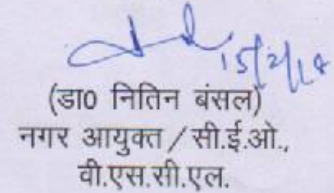 15/2/18
(डा0 नितिन बंसल)
नगर आयुक्त / सी.ई.ओ.,
वी.एस.सी.एल.